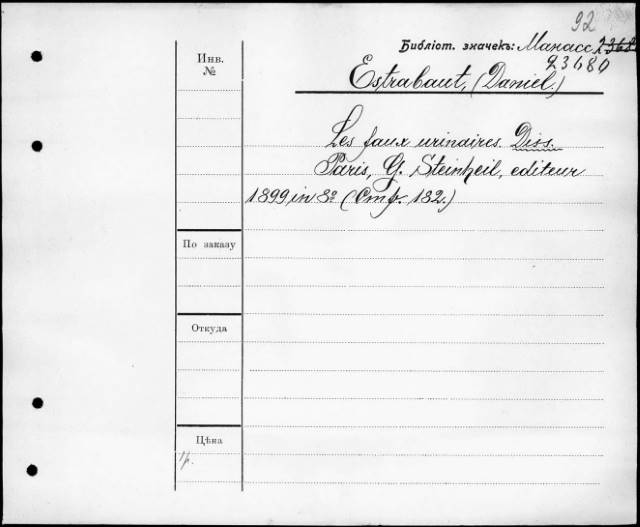 92
Инв.
№
Библіот. значекъ: Манасс 2368
23680
Estrabaut, (Daniel.)
Les faux urinaires. Diss.
Paris, G. Steinheil, editeur
1899, in 8º (Стр. 182.)
По заказу
Откуда
Цѣна
1р.